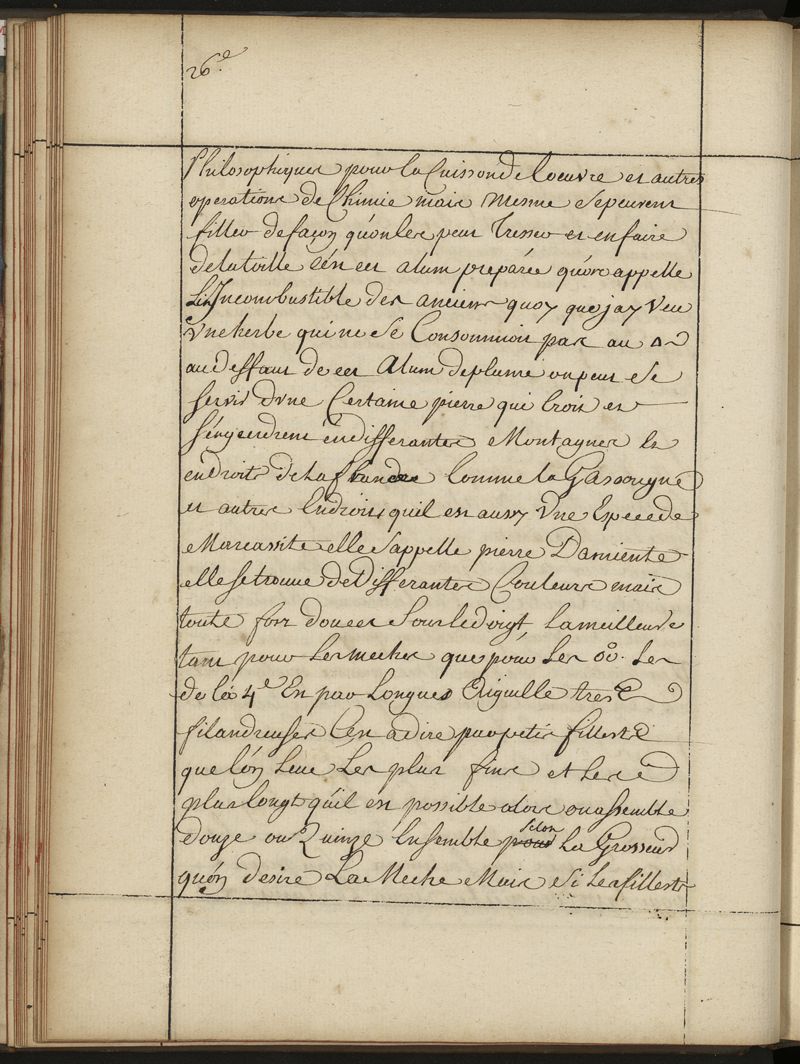 26.e
Philosophiques pour la Cuisson de loeuvre et autres
operations de Chimie mais mesme se peuvent
filler de façon qu'on les peut Tresser et en faire
de la toille c'en cet alum preparée qu'on appelle
Lin Incombustible des anciens quoy que jay veu
Vne herbe qui ne se Consommoit pas au
au deffaut de cet Alum de plume on peut se
servir d'vne Certaine pierre qui Croit et
s'engendrent en differantes Montagnes et
endroits de La france Comme la Gascougne
et autres Endroits quil est aussy Vne Espece de
Marcassite elle s'appelle pierre Damiente
elle se trouve de Differantes Couleurs mais
toute fort douces sous le doigt La meilleure
tant pour Les meches que pour Les Les
de la 4e En par Longues Eiguille tres
filandreuses C'en a dire par petis fillets
que l'on Leve Les plus fins et Les
plus longt qu'il en possible alors on assemble
douze ou Quinze Ensemble pour selon La Grosseur
qu'on desire La Meche Mais si Les fillets